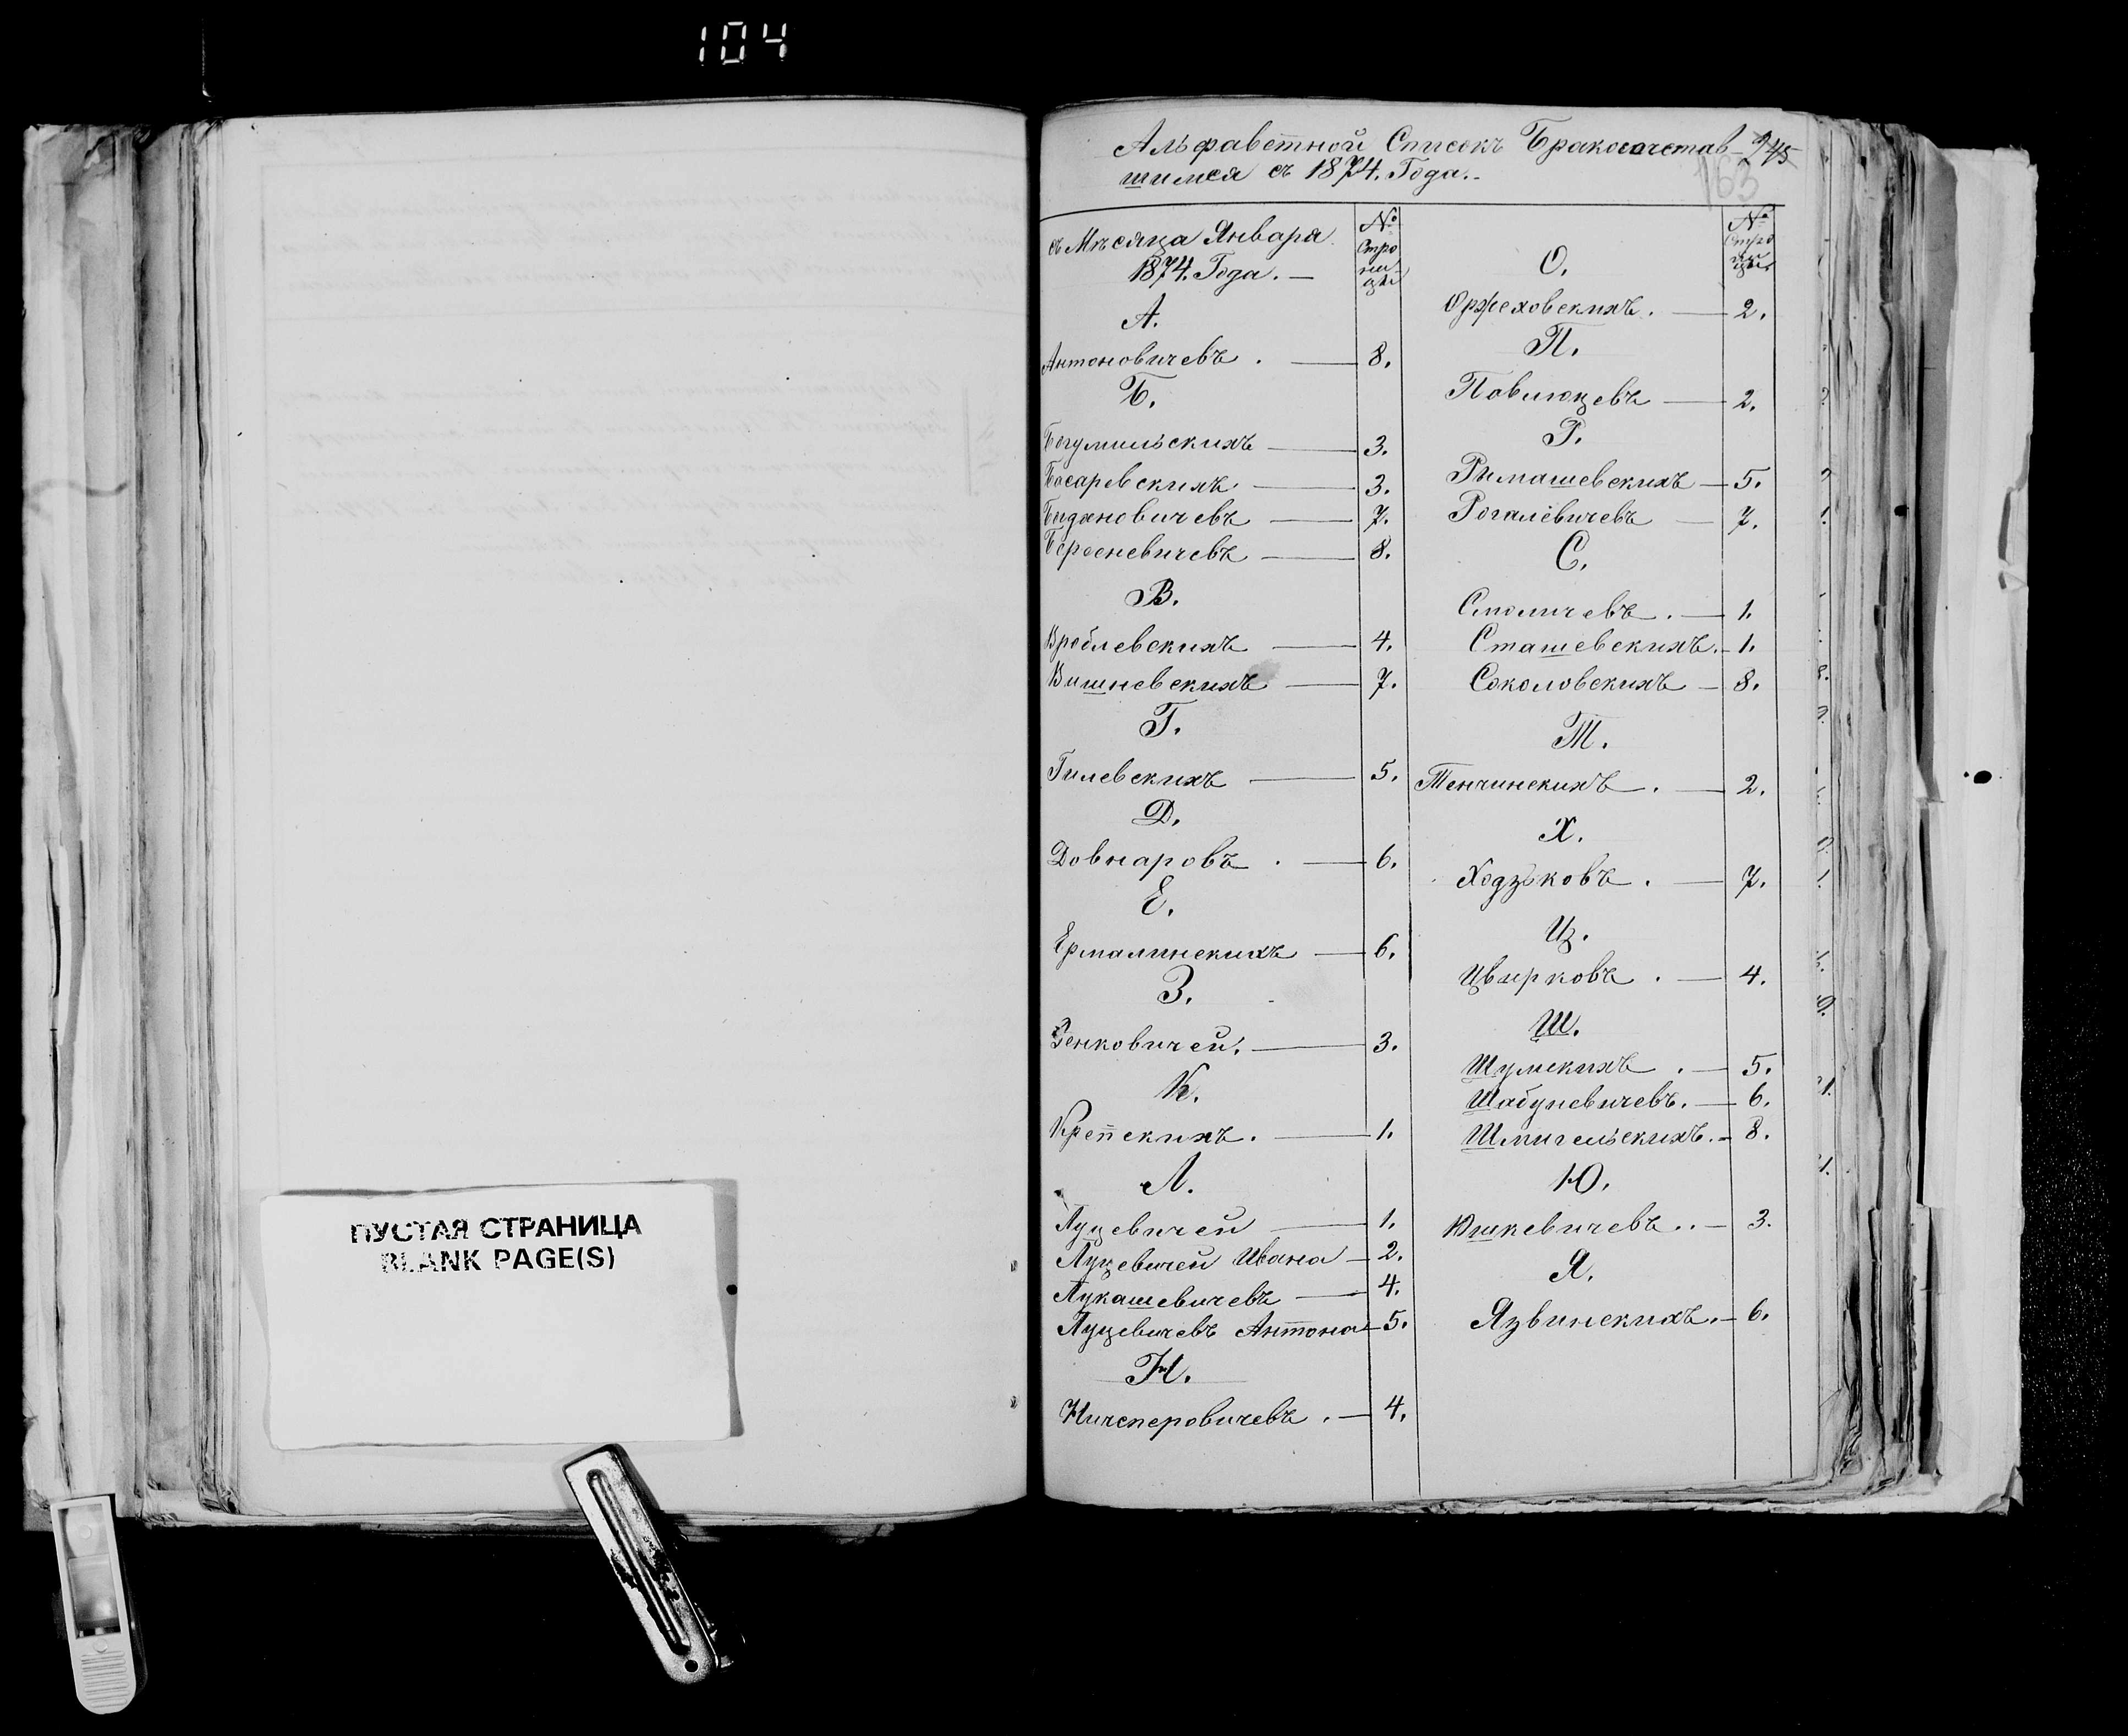 104
ПУСТАЯ СТРАНИЦА
BLANK PAGE(S)
Альфаветной Списокъ Бракосочетав-
шимся съ 1874. Года.-
245
163
съ Мѣсяца Января
1874. Года. —
№ Стро ни- цы
А.
Антоновичевъ . — 8.
Б.
Богумильскихъ — 3.
Босаревскихъ — 3.
Богдановичевъ — 7.
Бероеневичевъ — 8.
В.
Вроблевскихъ — 4.
Вишневскихъ — 7.
Г.
Гилевскихъ — 5.
Д.
Довнаровъ . — 6.
Е.
Ермалинскихъ — 6.
З.
Зенковичей. — 3.
К.
Крепскихъ. — 1.
Л.
Луцевичей — 1.
Луцевичей Ивана — 2.
Лукашевичевъ — 4.
Луцевичевъ Антона — 5.
Н.
Ничепоровичевъ . — 4.
№ Стро ни цы
О.
Оржеховскихъ . — 2.
П.
Повлюцевъ — 2.
Р.
Римашевскихъ — 5.
Рогалевичевъ — 7.
С.
Смоличевъ . — 1.
Сташевскихъ. — 1.
Соколовскихъ — 8.
Т.
Тенчинскихъ . — 2.
Х.
Ходзьковъ . — 7.
Ц.
Цвирковъ . — 4.
Ш.
Шумскихъ . — 5.
Шабуневичевъ. — 6.
Шмигельскихъ. — 8.
Ю.
Юшкевичевъ . . — 3.
Я.
Язвинскихъ. — 6.